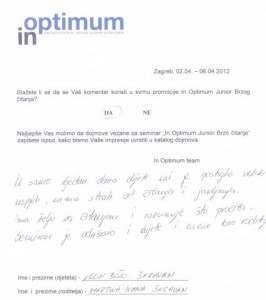 optimum
in
Zagreb, 02.04. – 06.04.2012
Slažete li se da se Vaš komentar koristi u svrhu promocije In Optimum Junior Brzog
čitanja?
DA NE
Najljepše Vas molimo da dojmove vezane za seminar „In Optimum Junior Brzo čitanje"
zapišete ispod, kako bismo Vaše impresije uvrstili u katalog dojmova.
In Optimum team
U samo tjedan dana dijete mi je postiglo veliki
uspjeh, nema strah od čitanja i
ima želju za čitanjem i razumije što pročita.
Seminar je oduševio i dijete i mene kao roditelja
Ime i prezime (djeteta) - LEON
Ime i prezime (roditelja) - MARTINA IVANA